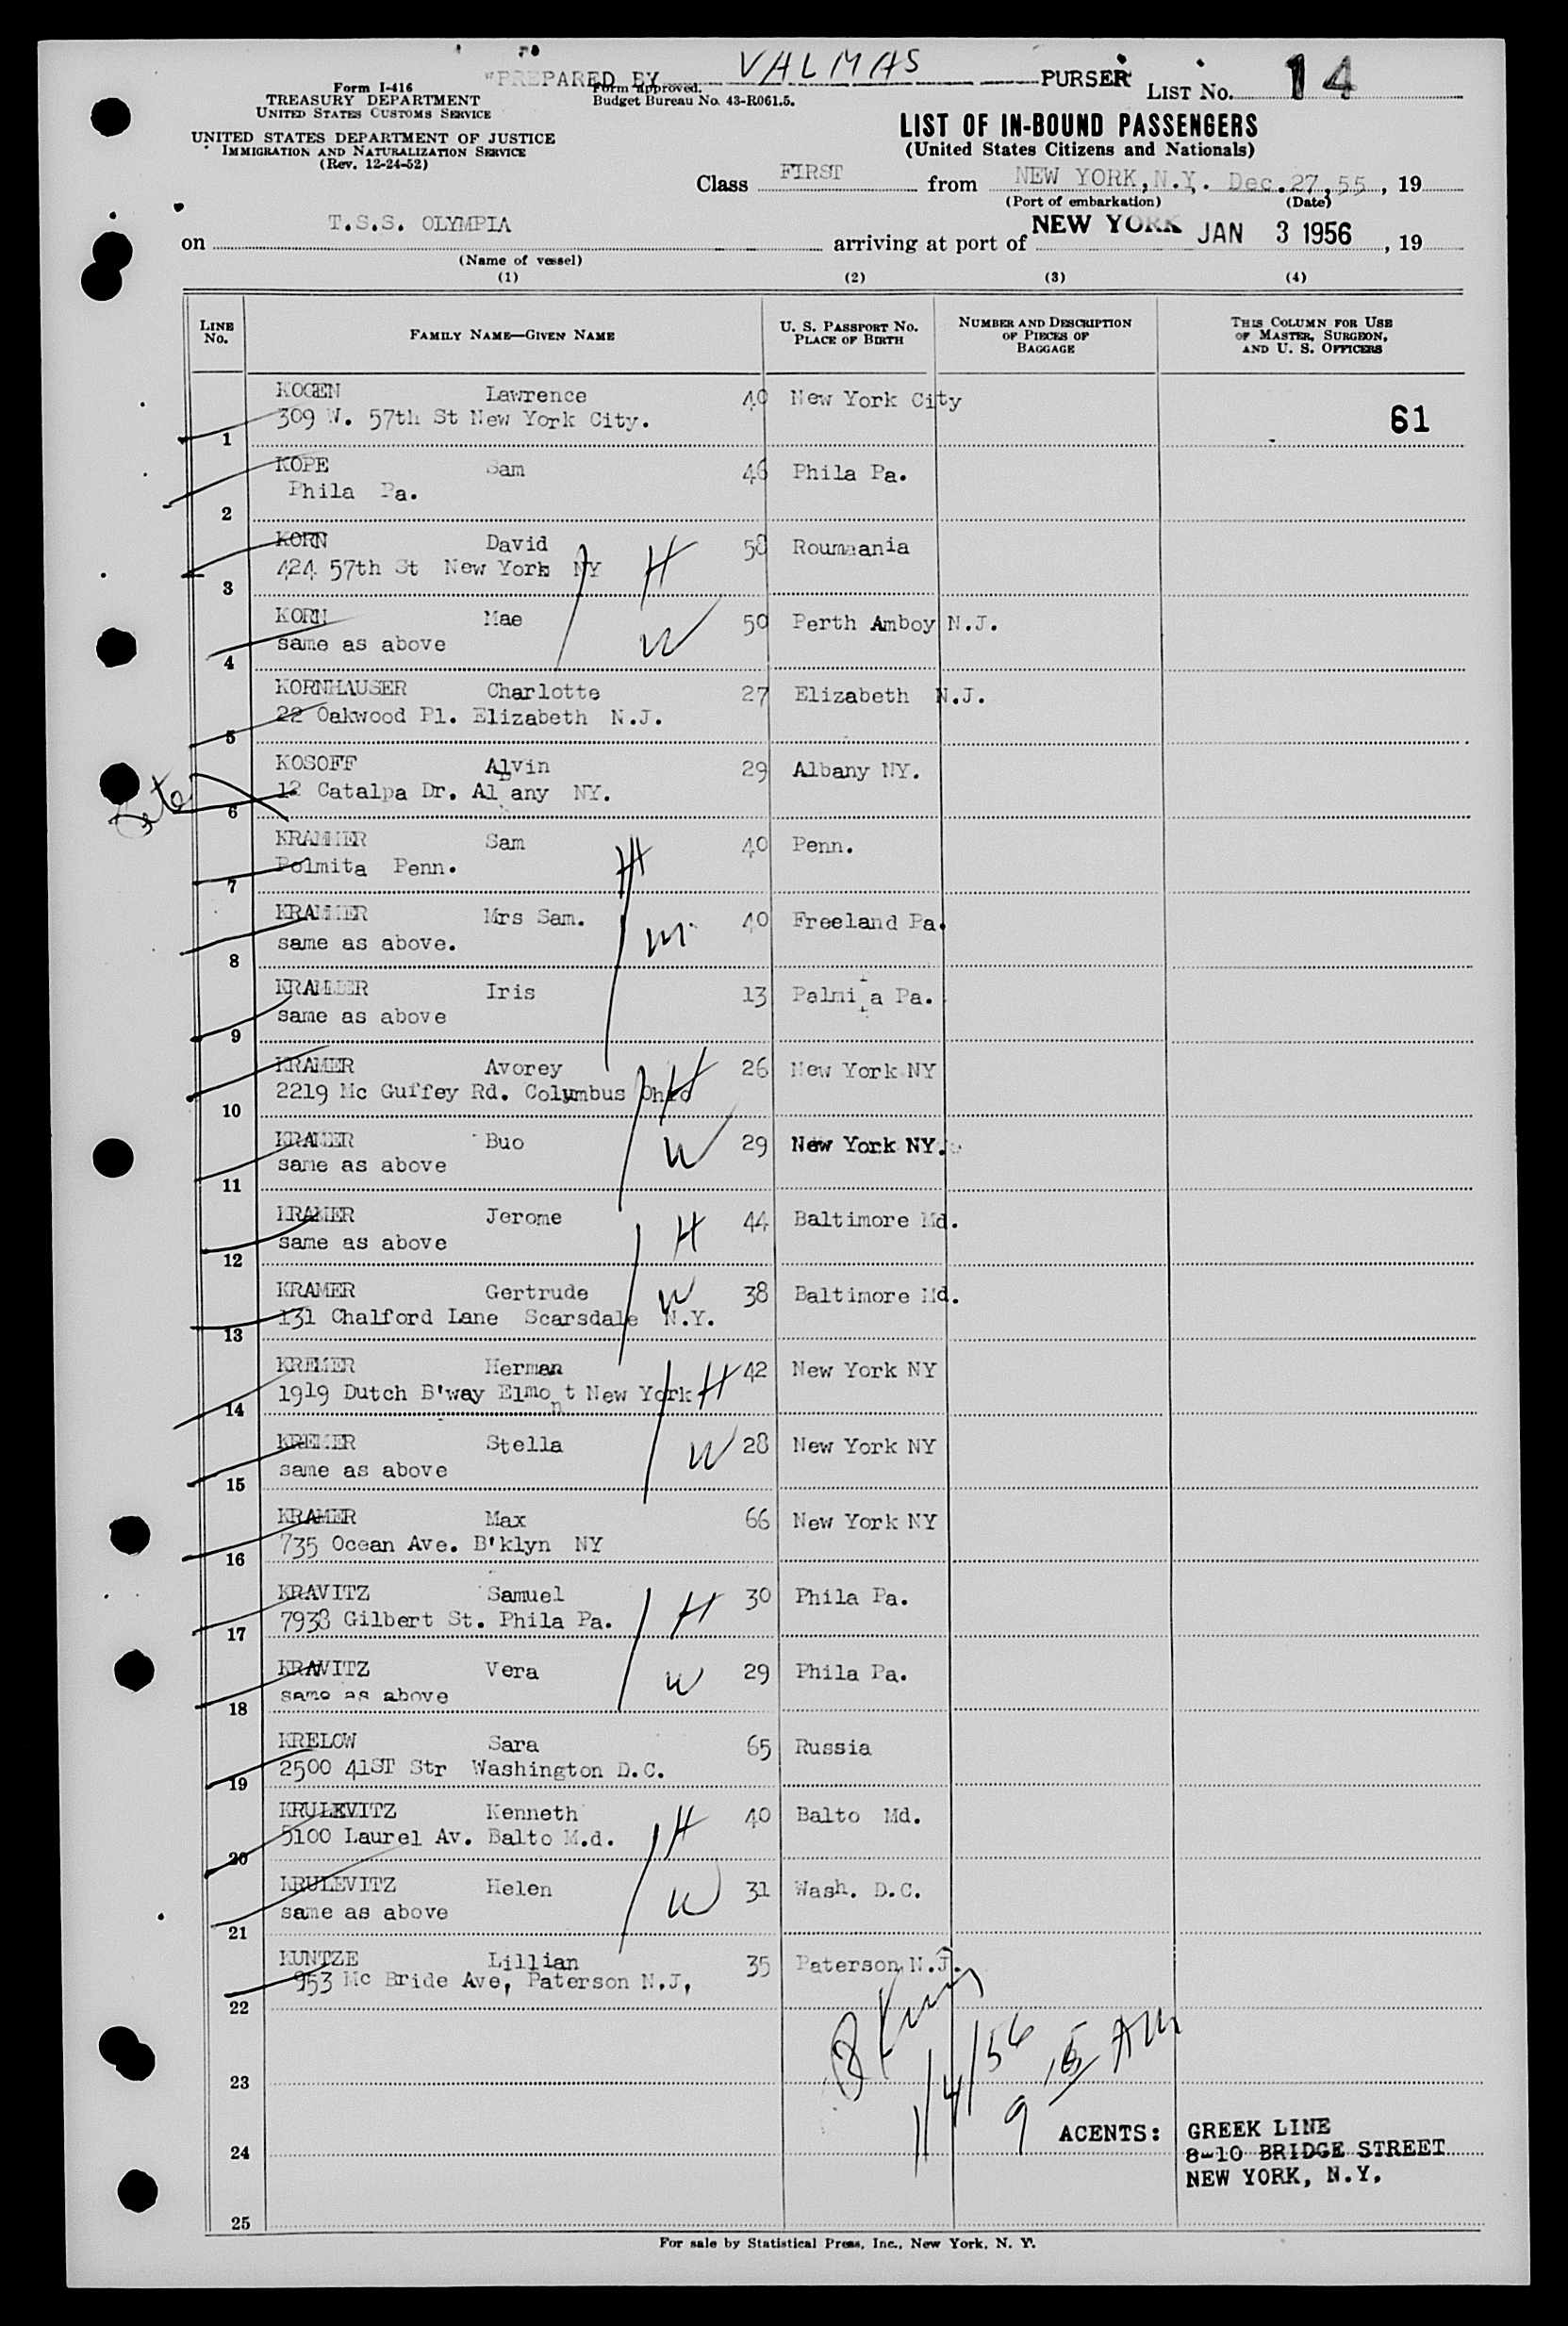 "PREPARED BY VALMAS PURSER
LIST NO. 14
Form I-416
TREASURY DEPARTMENT
UNITED STATES CUSTOMS SERVICE
UNITED STATES DEPARTMENT OF JUSTICE
IMMIGRATION AND NATURALIZATION SERVICE
(Rev. 12-24-52)
Form approved.
Budget Bureau No. 43-R061.5.
LIST OF IN-BOUND PASSENGERS
(United States Citizens and Nationals)
Class FIRST from NEW YORK, N.Y. Dec.27,55, 19
(Port of embarkation) (Date)
on T.S.S. OLYMPIA arriving at port of NEW YORK JAN 3 1956, 19
(Name of vessel)
(1) (2) (3) (4)
LINE NO. FAMILY NAME—GIVEN NAME U. S. PASSPORT NO. PLACE OF BIRTH NUMBER AND DESCRIPTION OF PIECES OF BAGGAGE THIS COLUMN FOR USE OF MASTER, SURGEON, AND U. S. OFFICERS
KOGEN Lawrence 40 New York City
1 309 W. 57th St New York City. 61
KOPE Sam 46 Phila Pa.
2 Phila Pa.
KORN David 58 Roumaania
3 424 57th St New York NY H
KORN Mae 50 Perth Amboy N.J.
4 same as above W
KORNHAUSER Charlotte 27 Elizabeth N.J.
5 22 Oakwood Pl. Elizabeth N.J.
KOSOFF Alvin 29 Albany NY.
6 12 Catalpa Dr. Albany NY.
KRAMMER Sam 40 Penn.
7 Polmita Penn. H
KRAMMER Mrs Sam. 40 Freeland Pa.
8 same as above. m
KRAMMER Iris 13 Palmita Pa.
9 same as above
KRAMER Avorey 26 New York NY
10 2219 Mc Guffey Rd. Columbus Ohio H
KRAMER Buo 29 New York NY.
11 same as above W
KRAMER Jerome 44 Baltimore Md.
12 same as above H
KRAMER Gertrude W 38 Baltimore Md.
13 131 Chalford Lane Scarsdale N.Y.
KREMER Herman 42 New York NY
14 1919 Dutch B'way Elmont New York H
KREMER Stella 28 New York NY
15 same as above W
KRAMER Max 66 New York NY
16 735 Ocean Ave. B'klyn NY
KRAVITZ Samuel 30 Phila Pa.
17 7938 Gilbert St. Phila Pa. H
KRAVITZ Vera 29 Phila Pa.
18 same as above W
KRELOW Sara 65 Russia
19 2500 41ST Str Washington D.C.
KRULEVITZ Kenneth 40 Balto Md.
20 5100 Laurel Av. Balto M.d. H
KRULEVITZ Helen 31 Wash. D.C.
21 same as above W
KUNTZE Lillian 35 Paterson N.J.
953 Mc Bride Ave, Paterson N.J,
22
1/4/56 9 15 AM
23
24
25
ACENTS: GREEK LINE
8-10 BRIDGE STREET
NEW YORK, N.Y.
For sale by Statistical Press, Inc., New York, N. Y.